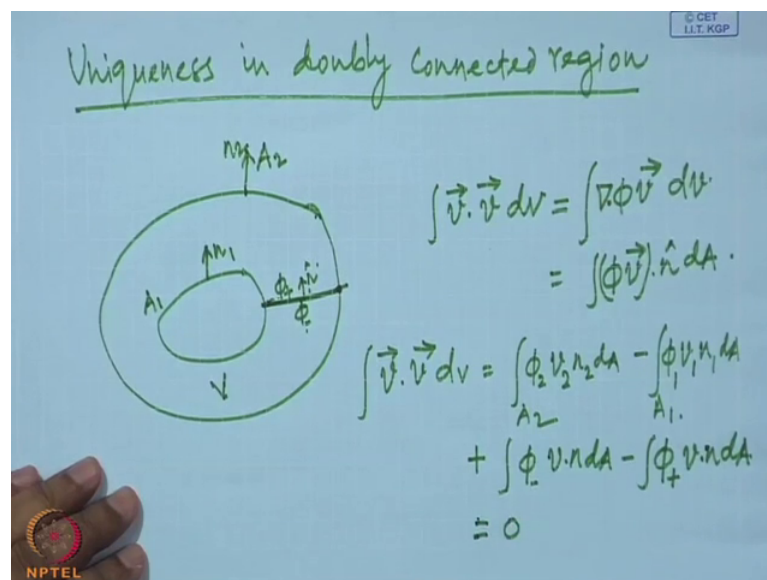 © CET
I.I.T. KGP
Uniqueness in doubly connected region
n₂ A₂
n₁
A₁
ϕ₊ n̂
ϕ₋
V
∫ v⃗ · v⃗ dv = ∫ ∇·ϕ v⃗ dv
= ∫(ϕv⃗)·n̂ dA ·
∫ v⃗ · v⃗ dv = ∫_{A₂} ϕ₂ v₂ n₂ dA − ∫_{A₁} ϕ₁ v₁ n₁ dA
+ ∫ ϕ₋ v·n dA − ∫ ϕ₊ v·n dA
= 0
NPTEL